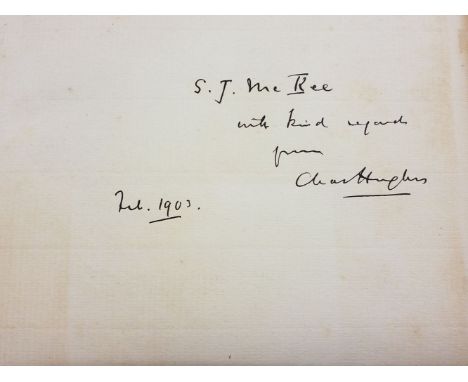 S. J. McKee
with kind regards
from
Chas Hughes
Feb. 1903.